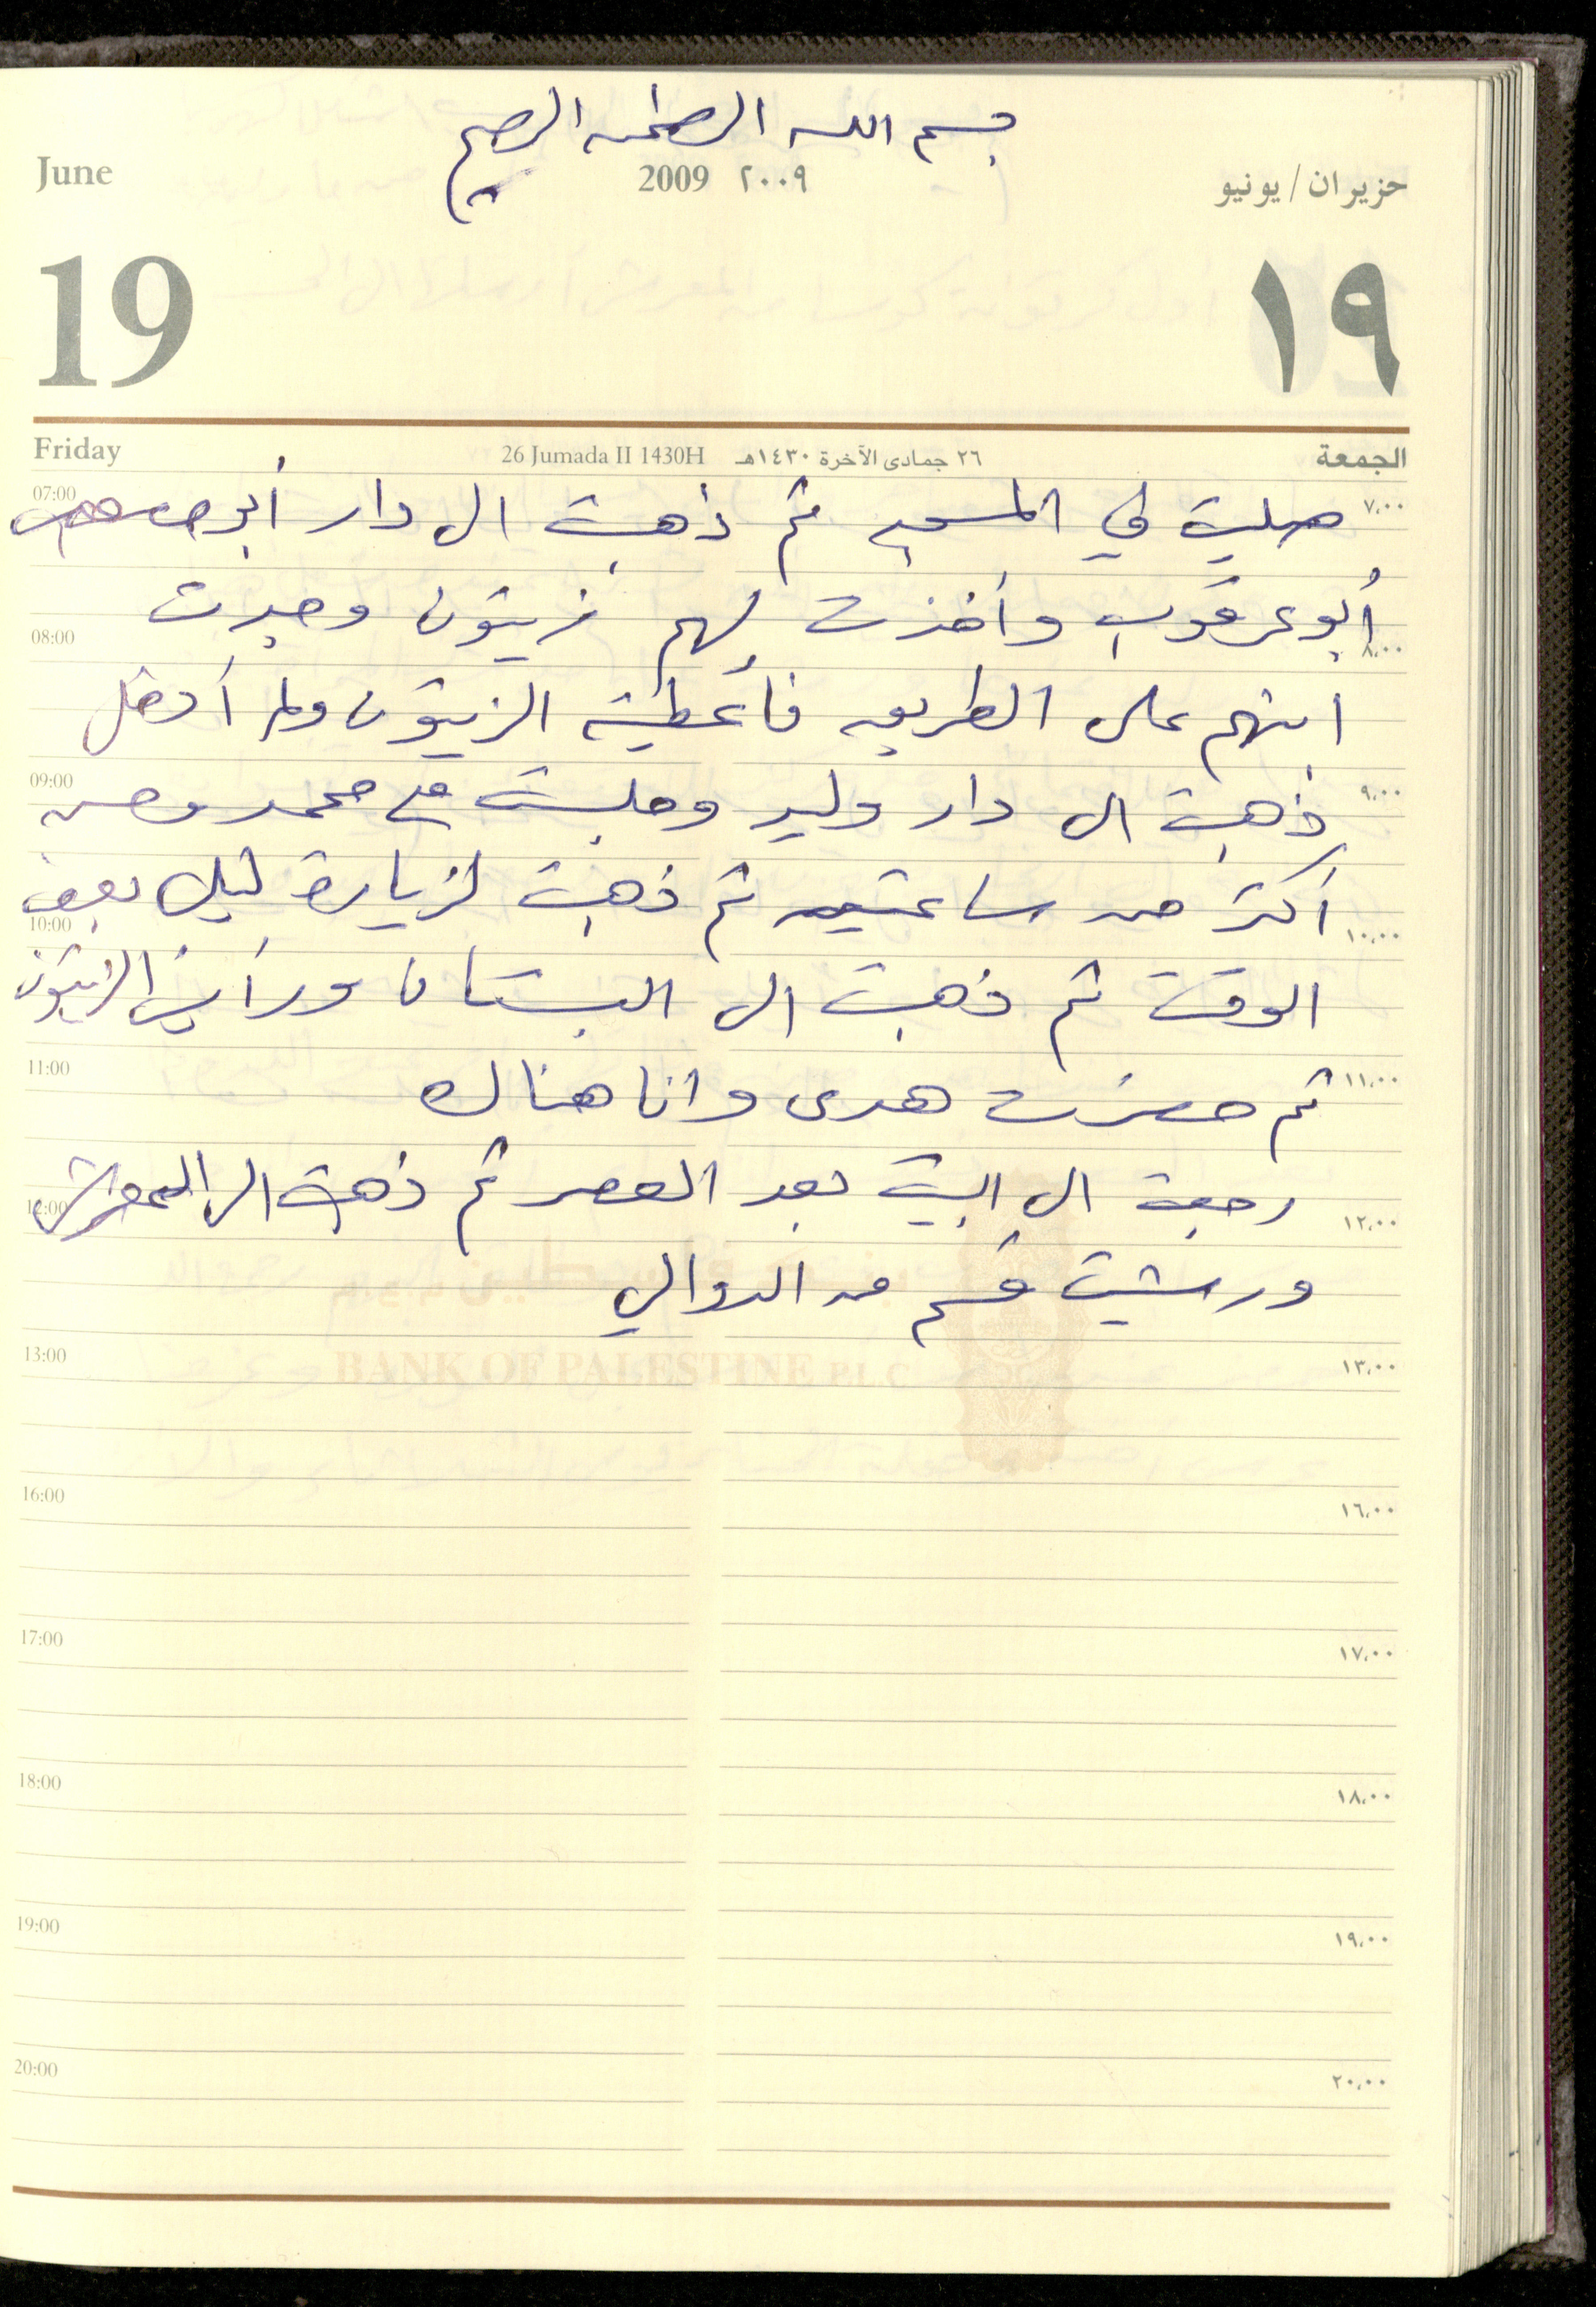 بسم الله الرحمن الرحيم
June 2009 ٢٠٠٩ حزيران/يونيو
19 ١٩
Friday 26 Jumada II 1430H ٢٦ جمادى الآخرة ١٤٣٠هـ الجمعة
07:00 صليت في المسجد ثم ذهبت الى دار أبو ٧،٠٠
أبو عرقوب وأخذت لهم زيتون وجدت
08:00 ٨،٠٠
ابنهم على الطريق فأعطيته الزيتون ولم أدخل
09:00 ذهبت الى دار وليد وجلست مع محمد وحسن ٩،٠٠
أكثر من ساعتين ثم ذهبت لزيارة نبيل بعض
10:00 ١٠،٠٠
الوقت ثم ذهبت الى البستان ورأيت الزيتون
11:00 ثم حضرت هدى وانا هناك ١١،٠٠
رجعت الى البيت بعد العصر ثم ذهبت الى المعرش
12:00 ١٢،٠٠
ورشيت قسم من الدوالي
بنك فلسطين م.ع.م
BANK OF PALESTINE P.L.C
13:00 ١٣،٠٠
16:00 ١٦،٠٠
17:00 ١٧،٠٠
18:00 ١٨،٠٠
19:00 ١٩،٠٠
20:00 ٢٠،٠٠